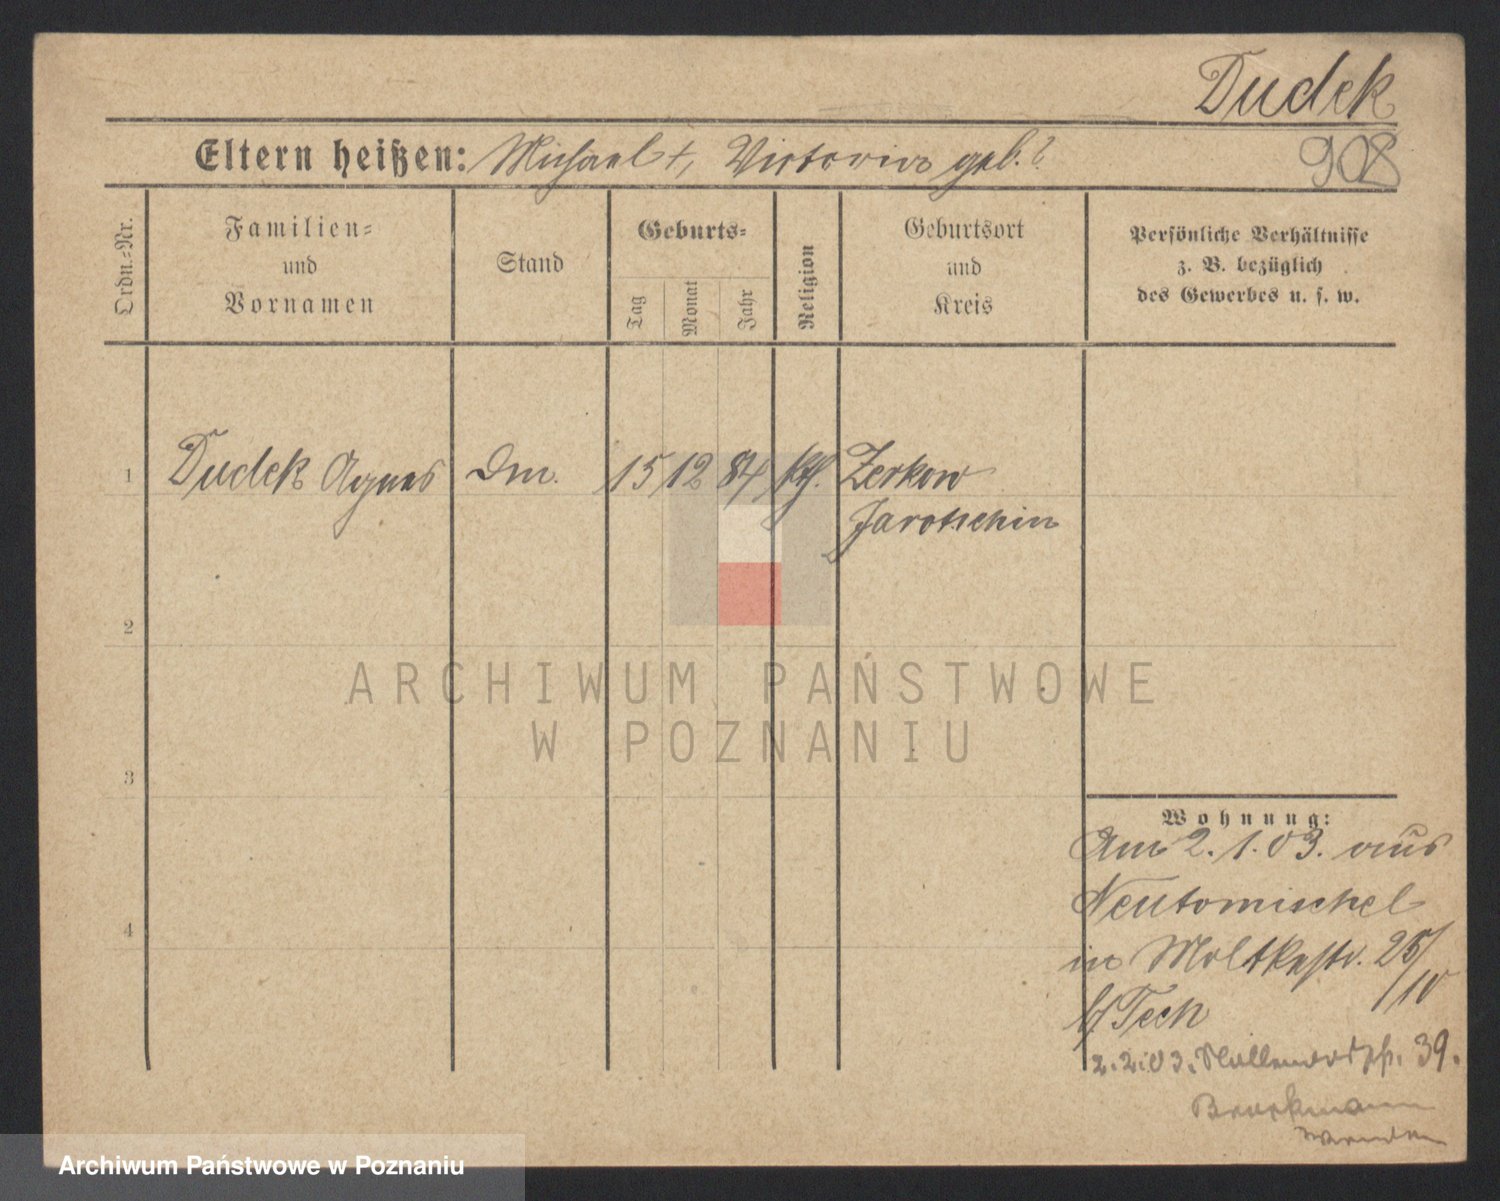 Dudek
Eltern heißen: Michael †, Victoria geb. ?
908
Ordn.-Nr.
Familien-
und
Vornamen
Stand
Geburts-
Tag
Monat
Jahr
Religion
Geburtsort
und
Kreis
Persönliche Verhältnisse
z. B. bezüglich
des Gewerbes u. s. w.
1 Dudek Agnes Dm. 15 12 84 kth. Zerkow
Jarotschin
2
ARCHIWUM PAŃSTWOWE
W POZNANIU
3
Wohnung:
Am 2.1.03. aus
Neutomischel
4
in Moltkestr. 25/
10
b/ Tech
2.2.03. 39.
Archiwum Państwowe w Poznaniu